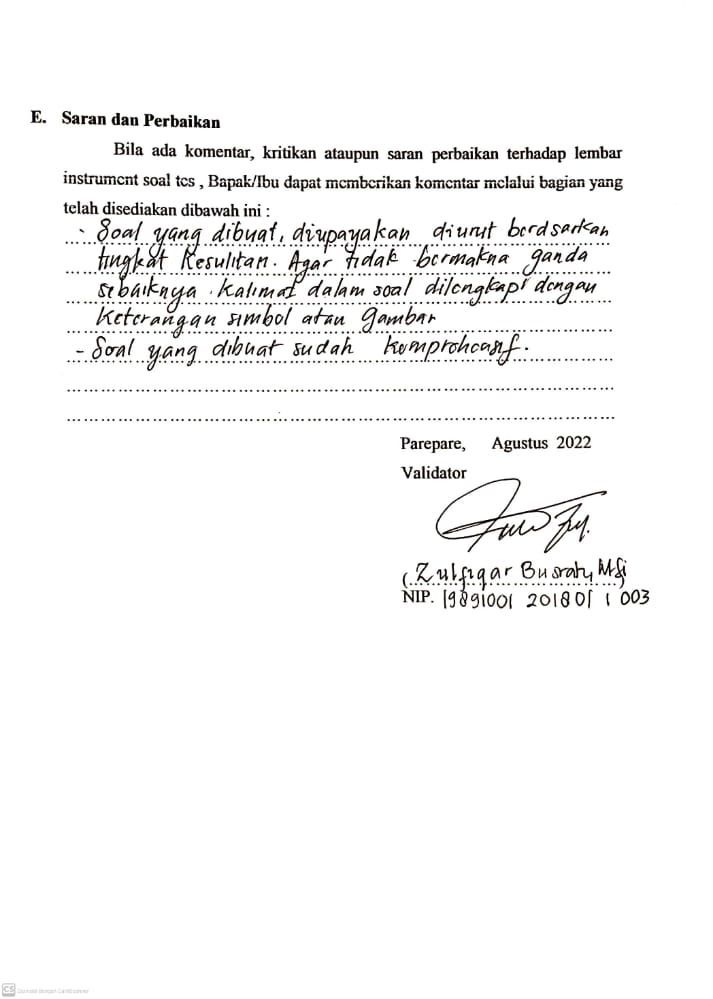 E. Saran dan Perbaikan
Bila ada komentar, kritikan ataupun saran perbaikan terhadap lembar
instrument soal tes , Bapak/Ibu dapat memberikan komentar melalui bagian yang
telah disediakan dibawah ini :
- Soal yang dibuat, diupayakan diurut berdsarkan
tingkat kesulitan. Agar tidak bermakna ganda
sebaiknya kalimat dalam soal dilengkapi dengan
keterangan simbol atau gambar
- Soal yang dibuat sudah komprehensif.
Parepare, Agustus 2022
Validator
( Zulfiqar Busrah, M.Si
NIP. 19891001 201801 1 003
CS Dipindai dengan CamScanner